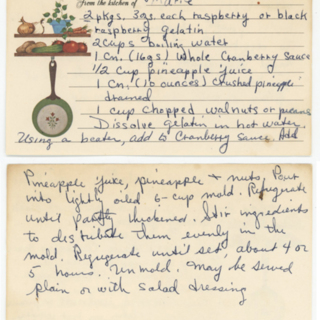 From the kitchen of Marie
2 pkgs. 3 ozs. each raspberry or black
raspberry gelatin
2 cups boilin water
1 Cn. (16 ozs) Whole Cranberry Sauce
1/2 Cup pineapple juice
1 Cn. (16 ounces) crushed pineapple
drained
1 cup chopped walnuts or pecans
Dissolve gelatin in hot water.
Using a beater, add to Cranberry Sauce. Add
Pineapple juice, pineapple + nuts. Pour
into lightly oiled 6-cup mold. Refrigerate
until partly thickened. Stir ingredients
to distribute them evenly in the
mold. Refrigerate until set, about 4 or
5 hours. Unmold. May be served
plain or with salad dressing